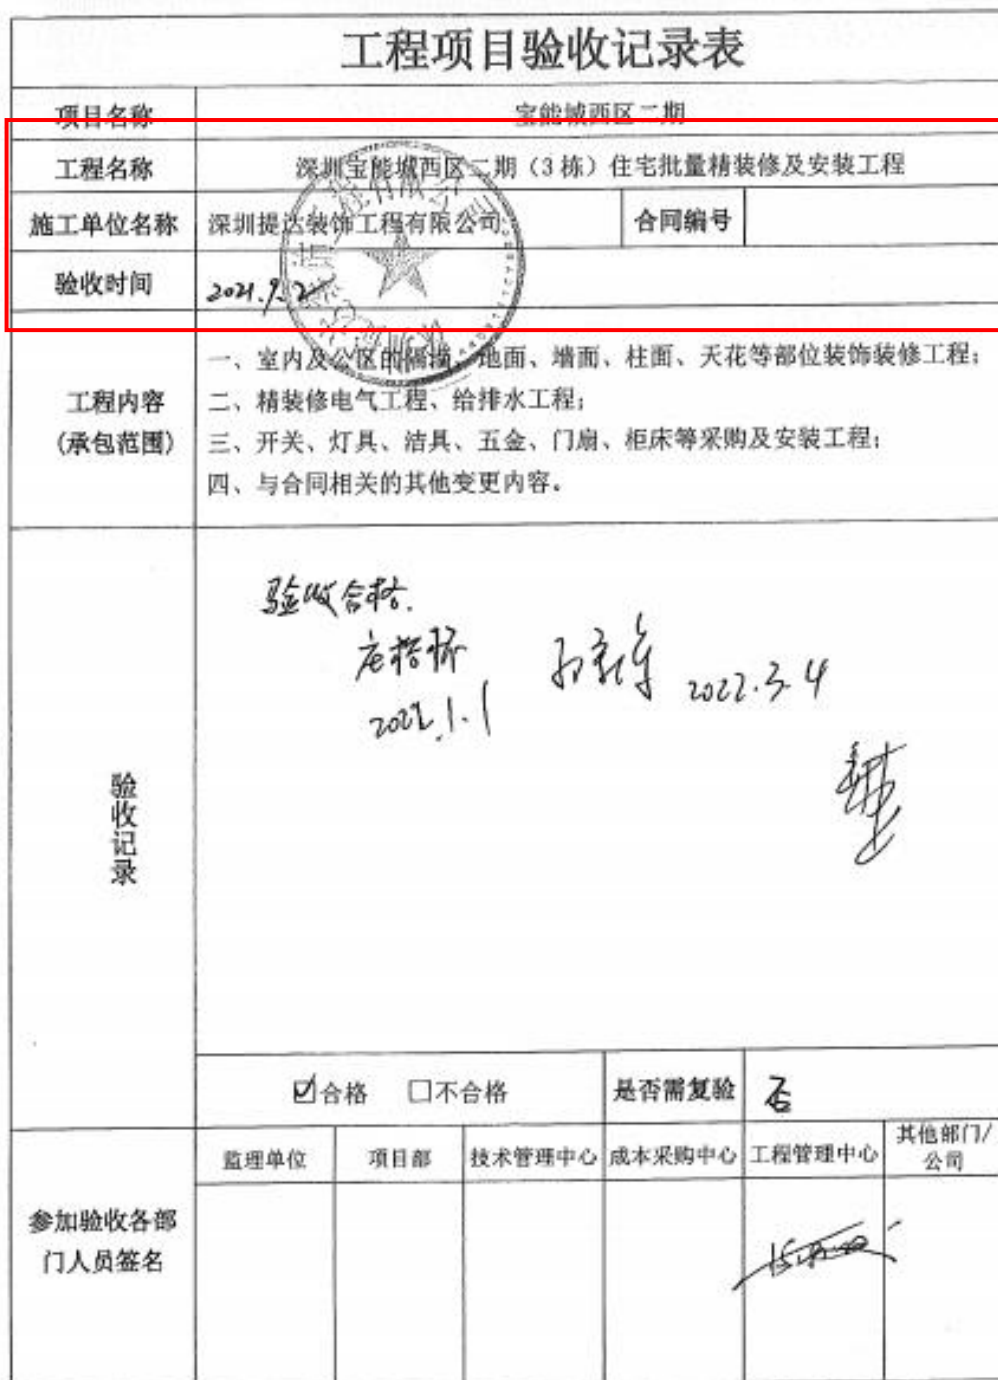 工程项目验收记录表
项目名称 宝能城西区二期
工程名称 深圳宝能城西区二期（3栋）住宅批量精装修及安装工程
施工单位名称 深圳提达装饰工程有限公司 合同编号
验收时间 2021.9.2
工程内容
(承包范围)
一、室内及公区的隔墙、地面、墙面、柱面、天花等部位装饰装修工程；
二、精装修电气工程、给排水工程；
三、开关、灯具、洁具、五金、门扇、柜床等采购及安装工程；
四、与合同相关的其他变更内容。
验收记录
验收合格.
2022.1.1
2022.3.4
☑合格 □不合格 是否需复验 否
参加验收各部
门人员签名
监理单位 项目部 技术管理中心 成本采购中心 工程管理中心 其他部门/
公司